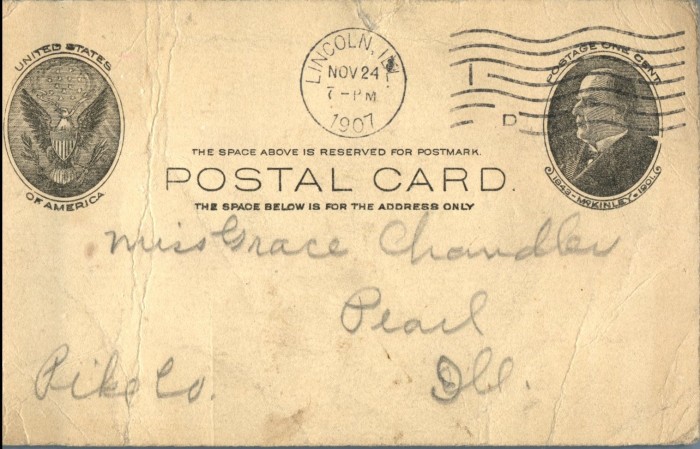 UNITED STATES
OF AMERICA
LINCOLN, ILL.
NOV 24
7-PM
1907
1
D
POSTAGE ONE CENT
1843-McKINLEY-1901.
THE SPACE ABOVE IS RESERVED FOR POSTMARK.
POSTAL CARD.
THE SPACE BELOW IS FOR THE ADDRESS ONLY
Miss Grace Chandler
Pearl
Pike Co. Ill.